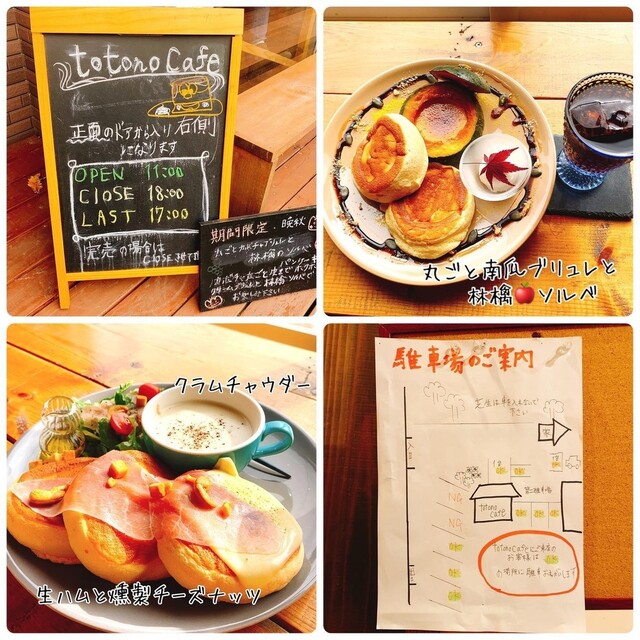 totono Cafe
正面のドアから入り右側
になります
OPEN 11:00
ClOSE 18:00
LAST 17:00
完売の場合は
CLOSEします
期間限定・晩秋
丸ごとカボチャブリュレと
林檎のソルベ
パンケーキ
丸ごと南瓜ブリュレと
林檎🍎ソルベ
クラムチャウダー
生ハムと燻製チーズナッツ
駐車場のご案内
芝生は車入れないで
下さい
NG
NG
totono
cafe
第二駐車場
totonoCafeにご来店の
お客様は
の場所に駐車お願いします